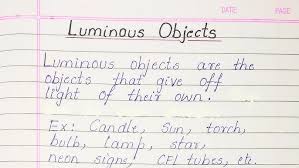 DATE PAGE
Luminous Objects
Luminous objects are the
objects that give off
light of their own.
Ex: Candle, Sun, torch,
bulb, lamp, star,
neon signs, CFl tubes, etc.